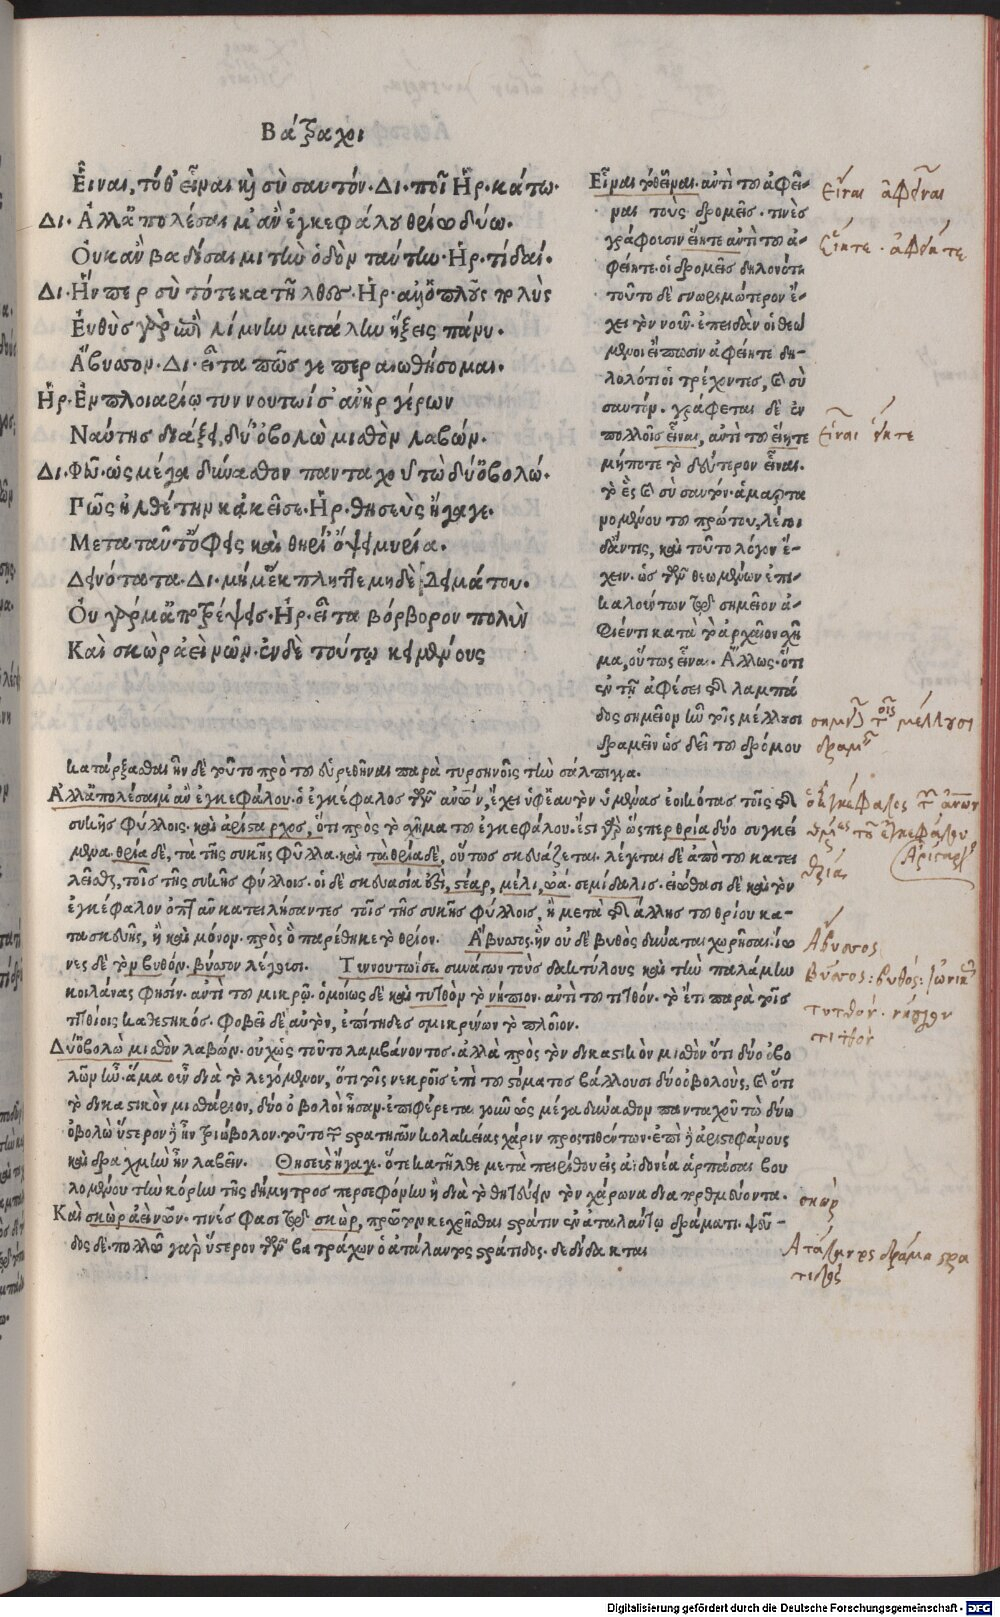 Βάτραχοι
Εἶναι, τόθ' εἶναι καὶ σὺ σαυτόν. Δι. ποῖ Ηρ. κάτω.
Δι. Ἀλλ' ἀπολέσαιμ' ἂν ἐγκεφάλου θρίω δύω.
Οὐκ ἂν βαδίσαιμι τὴν ὁδὸν ταύτην. Ηρ. τί δαί.
Δι. Ἥνπερ σὺ τότε κατῆλθες. Ηρ. ἀλλ' ὁ πλοῦς πολὺς
Ευθὺς γὰρ ἐπὶ λίμνην μεγάλην ἥξεις πάνυ.
Ἄβυσσον. Δι. εἶτα πῶς γε περαιωθήσομαι.
Ηρ. Ἐν πλοιαρίῳ τυννουτωί σ' ἀνὴρ γέρων
Ναύτης διάξει, δύ' ὀβολὼ μισθὸν λαβών.
Δι. Φεῦ. ὡς μέγα δύνασθον πανταχοῦ τὼ δύ' ὀβολώ.
Πῶς ἠλθέτην κἀκεῖσε. Ηρ. θησεὺς ἤγαγε.
Μετὰ ταῦτ' ὄφεις καὶ θηρί' ὄψει μυρία.
Δεινότατα. Δι. μή μ' ἔκπληττε μηδὲ δειμάτου.
Οὐ γάρ μ' ἀποτρέψεις. Ηρ. εἶτα βόρβορον πολὺν
Καὶ σκῶρ ἀείνων. ἐν δὲ τούτῳ κειμένους
Εἶναι τόθ' εἶναι. ἀντὶ τοῦ ἀφεῖ-
ναι τοὺς δρομεῖς. τινὲς
γράφουσιν εἵητε ἀντὶ τοῦ ἀ-
φείητε. οἱ δρομεῖς δηλονότι
τοῦτο δὲ γνωριμώτερον ἔ-
χει τὸν νοῦν. ἐπειδὰν οἱ θεώ
μενοι εἴπωσιν ἀφείητε δη-
λολότι οἱ τρέχοντες, καὶ σὺ
σαυτόν. γράφεται δὲ ἐν
πολλοῖς εἶναι, ἀντὶ τοῦ εἵητε
μήποτε τὸ δεύτερον εἶναι.
τὸ ἐς καὶ σὺ σαυτόν. ἁμαρτα
νομένου τοῦ πρώτου, λέποι
δάντις, καὶ τοῦτο λόγον ἔ-
χειν. ὡς τῶν θεωμένων ἐπι-
καλούντων τῷ σημεῖον ἀ-
φιέντι κατὰ τὸ ἀρχαῖον χῆ
μα, οὕτως εἶναι. Ἄλλως. ὅτι
ἐν τῇ ἀφέσει τῆς λαμπά
δος σημεῖον ἦν τοῖς μέλλουσι
δραμεῖν ὡς δεῖ τοῦ δρόμου
κατάρξασθαι ἦν δὲ τοῦτο πρὸ τοῦ εὑρεθῆναι παρὰ τυρσηνοῖς τὴν σάλπιγγα.
Ἀλλ' ἀπολέσαιμ' ἂν ἐγκεφάλου. ὁ ἐγκέφαλος τῶν ἀνθρώπων, ἔχει ὑφ' ἑαυτὸν ὑμένας ἐοικότας τοῖς τῆς
συκῆς φύλλοις. καὶ ἀρίσταρχος, ὅτι πρὸς τὸ σχῆμα τοῦ ἐγκεφάλου. ἔστι γὰρ ὥσπερ θρία δύο συγκεί
μενα. θρία δὲ, τὰ τῆς συκῆς φύλλα. καὶ τὰ θρία δὲ, οὕτως σκευάζεται. λέγεται δὲ ἀπὸ τοῦ κατει
λεῖσθαι, τοῖς τῆς συκῆς φύλλοις. οἱ δὲ σκευασία ἐστὶ, στέαρ, μέλι, ὠά. σεμίδαλις. εἰώθασι δὲ καὶ τὸν
ἐγκέφαλον ὀπτᾶν κατειλήσαντες τοῖς τῆς συκῆς φύλλοις, ἢ μετὰ τῆς ἄλλης τοῦ θρίου κα-
τασκευῆς, ἢ καὶ μόνον. πρὸς ὃ παρέθηκε τὸ θρίον. Ἄβυσσος. ἣν οὐ δὲ βυθὸς δύναται χωρῆσαι. ἴω
νες δὲ τὸν βυθόν. βύσσον λέγουσι. Τυννουτωί σε. συνάπτων τοὺς δακτύλους καὶ τὴν παλάμην
κοιλάνας φησίν. ἀντὶ τοῦ μικρῷ. ὁμοίως δὲ καὶ τυτθὸν τὸ νήπιον. ἀντὶ τοῦ τιτθόν. τὸ ἔτι παρὰ τοῖς
τιτθίοις καθεστηκός. φοβεῖ δὲ αὐτὸν, ἐπίτηδες σμικρύνων τὸ πλοῖον.
Δύ' ὀβολὼ μισθὸν λαβών. οὐχ ὡς τοῦτο λαμβάνοντος. ἀλλὰ πρὸς τὸν δικαστικὸν μισθὸν ὅτι δύο ὀβο
λῶν ἦν. ἅμα οὖν διὰ τὸ λεγόμενον, ὅτι τοῖς νεκροῖς ἐπὶ τοῦ στόματος βάλλουσι δύο ὀβολοὺς, καὶ ὅτι
τὸ δικαστικὸν μισθάριον, δύο ὀβολοὶ ἦσαν. ἐπιφέρεται γοῦν ὡς μέγα δύνασθον πανταχοῦ τὼ δύω
ὀβολὼ ὕστερον ἢ ἦν τριώβολον. τοῦτο τῶν στρατηγῶν κολακείας χάριν προστιθέντων. ἐπὶ ἢ ἀριστοφάνους
καὶ δραχμὴν ἦν λαβεῖν. Θησεὺς ἤγαγε. ὅτε κατῆλθε μετὰ πειρίθου εἰς ἀϊδονέα ἁρπάσαι βου
λομένου τὴν κόρην τῆς δήμητρος περσεφόνην ἢ διὰ τὸ θητεύειν τὸν χάρωνα διαπορθμεύοντα.
Καὶ σκῶρ ἀείνων. τινές φασι τῷ σκῶρ, πρῶτον κεχρῆσθαι στράτιν ἐν ἀταλάντῳ δράματι. ψεῦ-
δος δέ. πολλῷ γὰρ ὕστερον τῶν βατράχων ὁ ἀτάλαντος στράτιδος. δεδίδακται
εἶναι ἀφεῖναι
εἵητε. ἀφείητε
εἶναι εἵητε
σημεῖον τοῖς μέλλουσι
δραμεῖν
ὁ ἐγκέφαλος τῶν ἀνθρώπων
τοῦ ἐγκεφάλου
Ἀρίσταρχος
θρία
Ἄβυσσος
Βύσσος: βυθός: ἰωνικ
τυτθόν. νήπιον
τιτθόν
σκῶρ
Ἀτάλαντος δρᾶμα στρά
τιδος
Digitalisierung gefördert durch die Deutsche Forschungsgemeinschaft - DFG